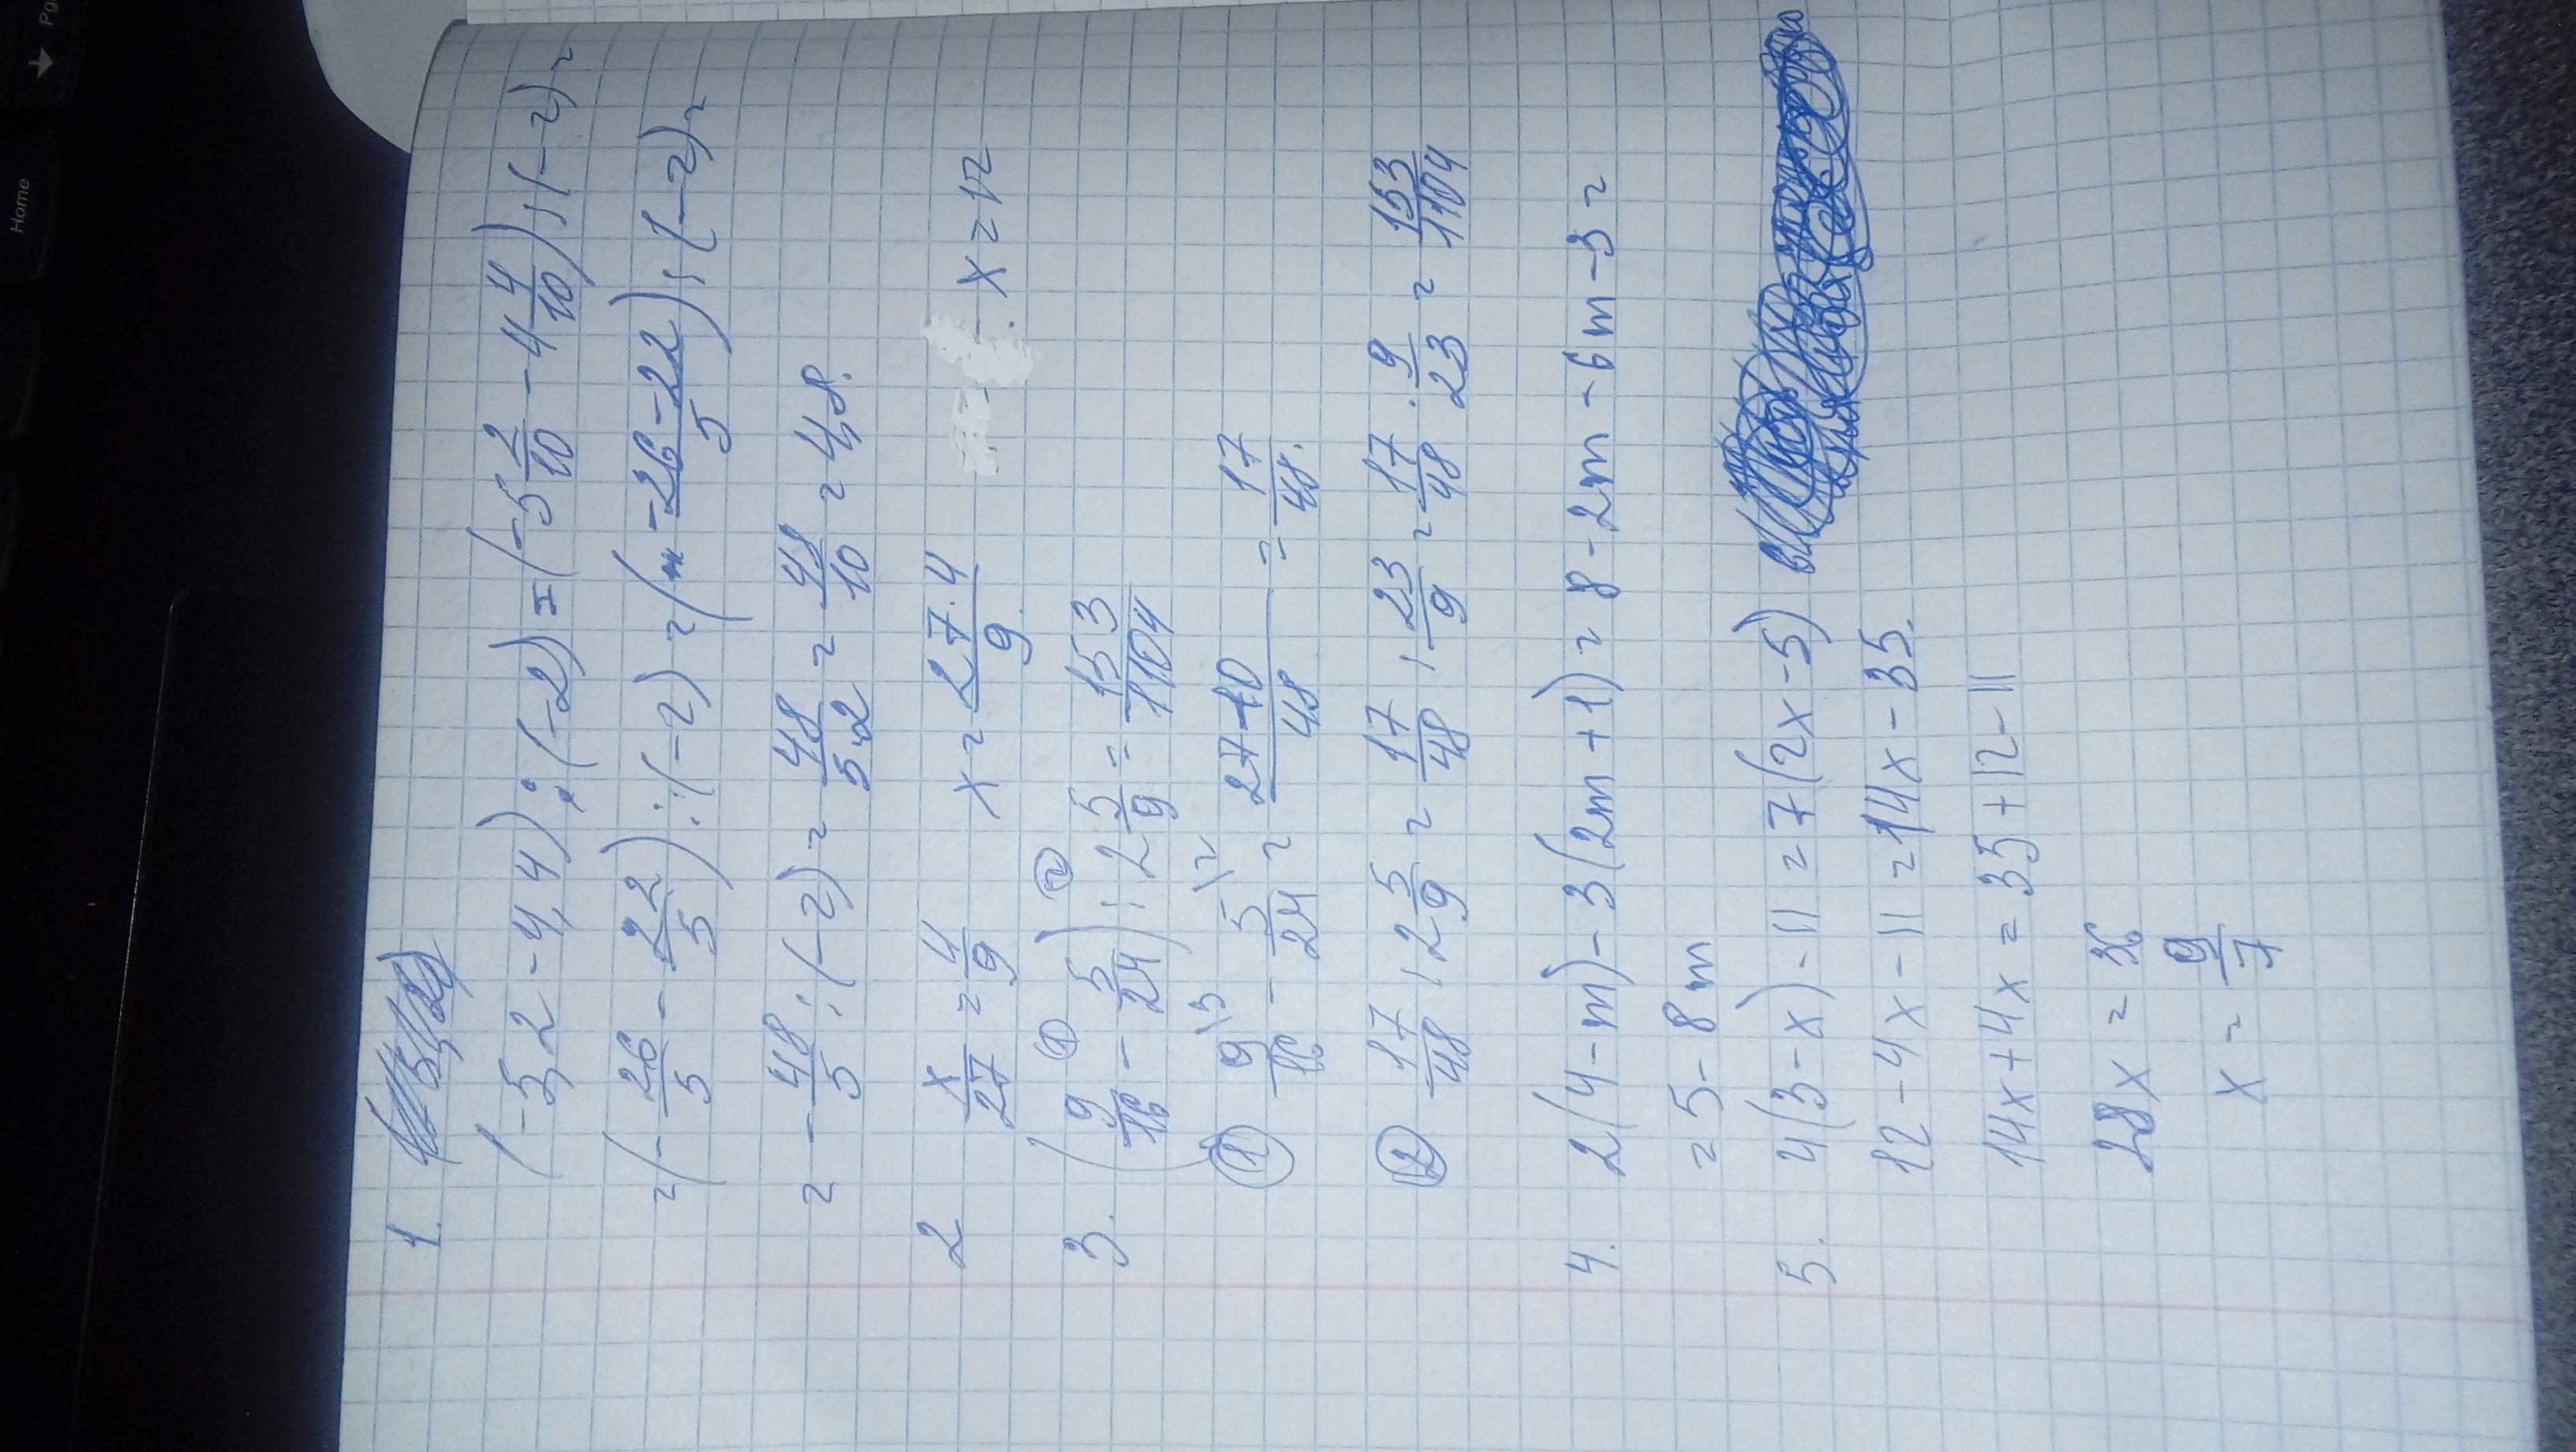 1.
(-5,2-4,4):(-2)=(-5 2/10 - 4 4/10):(-2)=
=(-26/5 - 22/5):(-2)=(-26-22/5):(-2)=
=-48/5:(-2)=48/5·2=48/10=4,8.
2 x/27=4/9 x=27·4/9 x=12
3. (9/16 - 5/24):2 5/9=153/1104
① ②
① 9/16\3 - 5/24\2=27-10/48=17/48.
② 17/48:2 5/9=17/48:23/9=17/48·9/23=153/1104
4. 2(4-m)-3(2m+1)=8-2m-6m-3=
=5-8m
5. 4(3-x)-11=7(2x-5)
12-4x-11=14x-35.
14x+4x=35+12-11
28x=36
x=9/7
Home
Pg